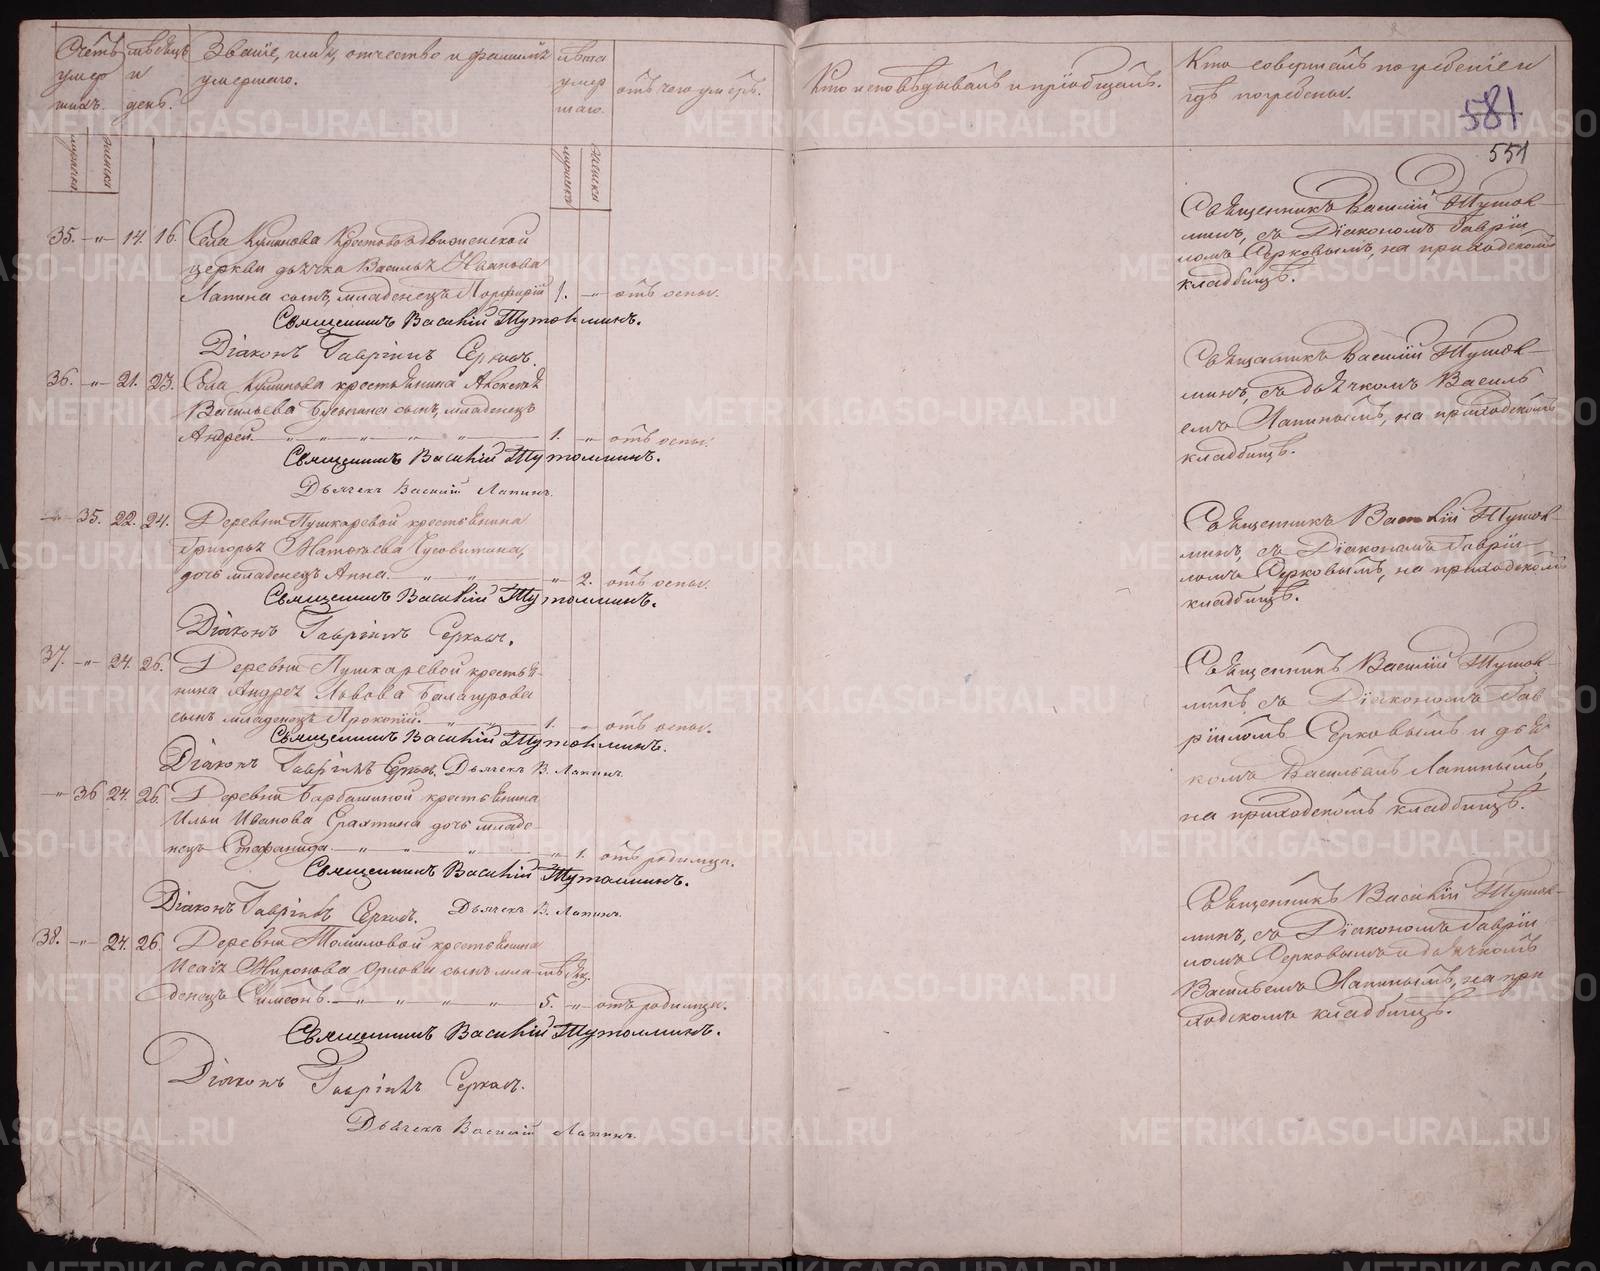 Счетъ умершихъ.
мѣсяцъ и день.
Званіе, имя, отчество и фамилія умершаго.
лѣта умершаго.
отъ чего умеръ.
Кто исповѣдывалъ и пріобщалъ.
Кто совершалъ погребеніе и
гдѣ погребены.
581
551
мужеска
женска
мужеска
женска
35. —„— 14. 16. Села Куликова Крестовоздвиженской
церкви дьячка Василья Иванова
Лапина сынъ, младенецъ Порфирій 1. —„— отъ оспы.
Священникъ Василій Тутолминъ.
Діаконъ Гавріилъ Серковъ.
Священникъ Василій Тутол-
минъ, съ Діакономъ Гаврі-
ломъ Серковымъ, на приходскомъ
кладбищѣ.
36. —„— 21. 23. Села Куликова крестьянина Алексѣя
Васильева сынъ, младенецъ
Андрей. 1. —„— отъ оспы.
Священникъ Василій Тутолминъ.
Дьячекъ Василій Лапинъ.
Священникъ Василій Тутол-
минъ, съ дьячкомъ Василь-
емъ Лапинымъ, на приходскомъ
кладбищѣ.
—„— 35. 22. 24. Деревни Пушкаревой крестьянина
Григорья Матвѣева Чусовитина,
дочь младенецъ Анна. —„— 2. отъ оспы.
Священникъ Василій Тутолминъ.
Діаконъ Гавріилъ Серковъ.
Священникъ Василій Тутол-
минъ, съ Діакономъ Гаврі-
ломъ Серковымъ, на приходскомъ
кладбищѣ.
37. —„— 24. 26. Деревни Пушкаревой крестья-
нина Андрея Львова Балагурова
сынъ младенецъ Прокопій. 1. —„— отъ оспы.
Священникъ Василій Тутолминъ.
Діаконъ Гавріилъ Серковъ. Дьячекъ В. Лапинъ.
Священникъ Василій Тутол-
минъ съ Діакономъ Гав-
ріиломъ Серковымъ и дьяч-
комъ Васильемъ Лапинымъ,
на приходскомъ кладбищѣ.
—„— 36 24. 26. Деревни Барбашиной крестьянина
Ильи Иванова дочь младе-
нецъ Стефанида. —„— 1. отъ родимца.
Священникъ Василій Тутолминъ.
Діаконъ Гавріилъ Серковъ. Дьячекъ В. Лапинъ.
38. —„— 24. 26. Деревни Томиловой крестьянина
Исаіи Миронова Орлова сынъ мла- мѣсяц.
денецъ Симеонъ. 5. —„— отъ родимца.
Священникъ Василій Тутолминъ.
Діаконъ Гавріилъ Серковъ.
Дьячекъ Василій Лапинъ.
Священникъ Василій Тутол-
минъ, съ Діакономъ Гаврі-
ломъ Серковымъ и дьячкомъ
Васильемъ Лапинымъ, на при-
ходскомъ кладбищѣ.
METRIKI.GASO-URAL.RU